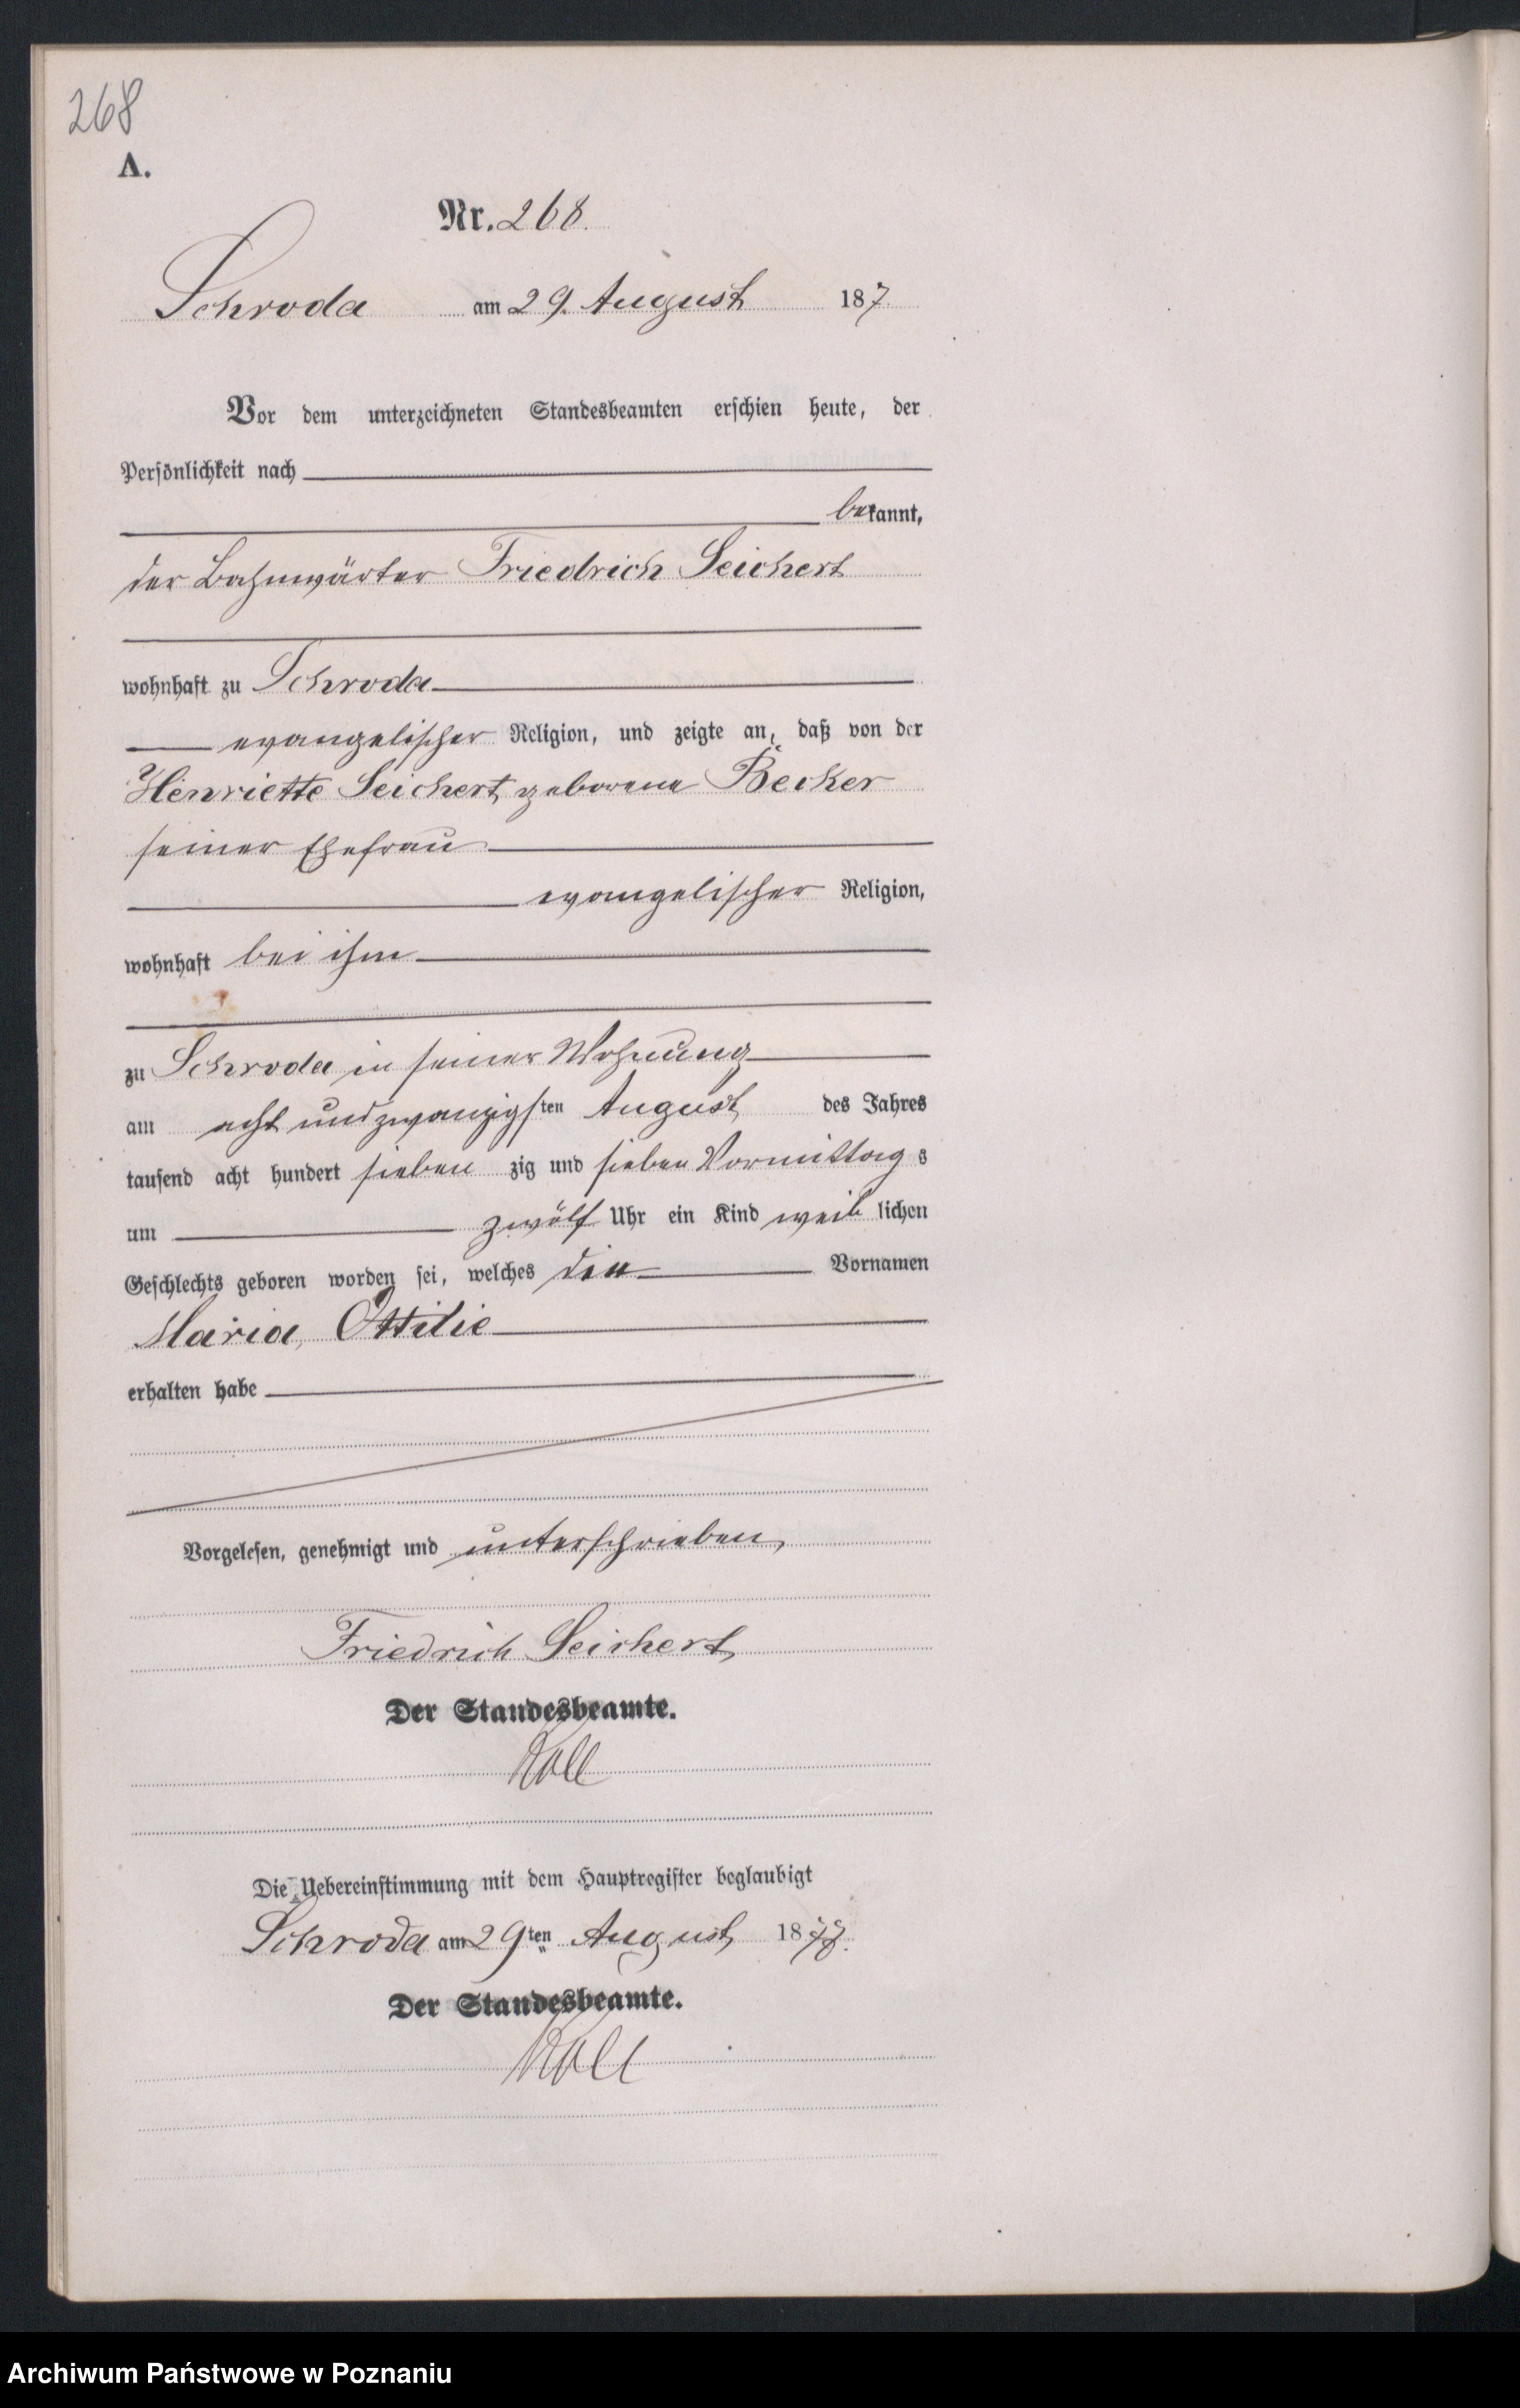 268
A.
Nr. 268.
Schroda am 29. August 1877.
Vor dem unterzeichneten Standesbeamten erschien heute, der
Persönlichkeit nach
bekannt,
der Bahnwärter Friedrich Seichert
wohnhaft zu Schroda
evangelischer Religion, und zeigte an, daß von der
Henriette Seichert, geborene Becker
seiner Ehefrau
evangelischer Religion,
wohnhaft bei ihm
zu Schroda in seiner Wohnung
am acht und zwanzigsten August des Jahres
tausend acht hundert siebenzig und sieben Vormittags
um zwölf Uhr ein Kind weiblichen
Geschlechts geboren worden sei, welches die Vornamen
Maria, Ottilie
erhalten habe
Vorgelesen, genehmigt und unterschrieben,
Friedrich Seichert
Der Standesbeamte.
Die Uebereinstimmung mit dem Hauptregister beglaubigt
Schroda am 29ten August 1877.
Der Standesbeamte.
Archiwum Państwowe w Poznaniu